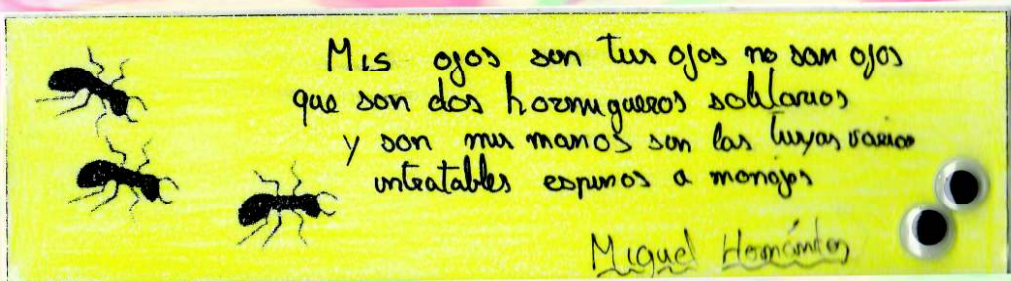 Mis ojos son tus ojos no son ojos
que son dos hormigueros solitarios
y son mis manos son las tuyas varios
intratables espinos a manojos
Miguel Hernández